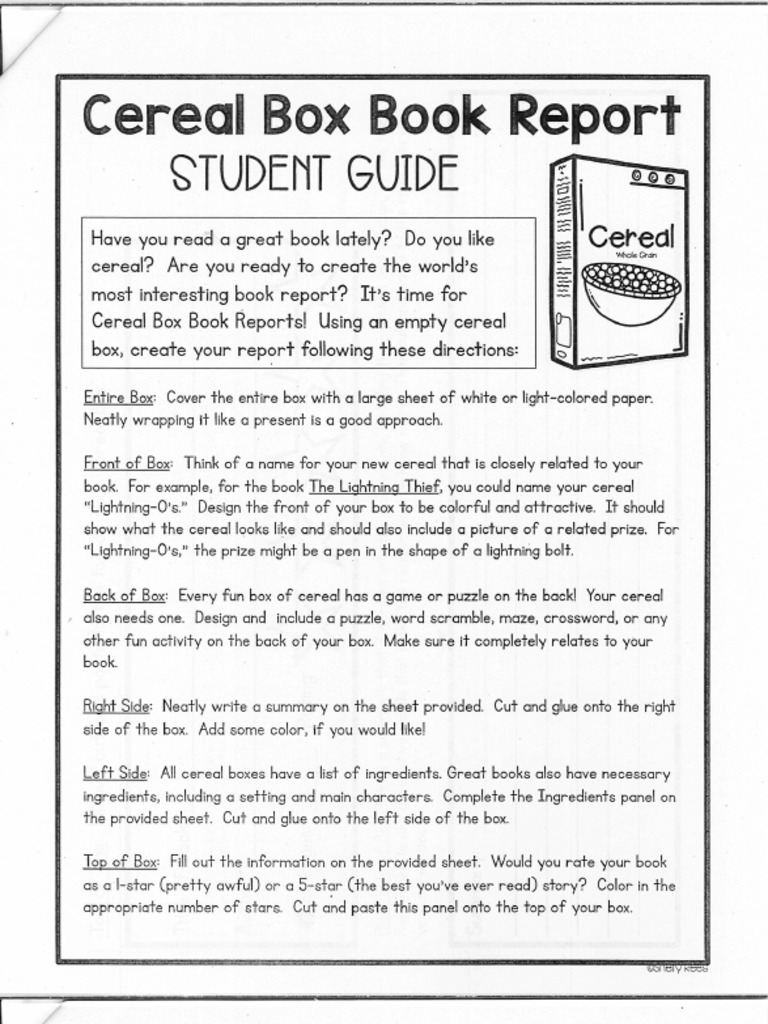 Cereal Box Book Report
STUDENT GUIDE
Have you read a great book lately? Do you like
cereal? Are you ready to create the world's
most interesting book report? It's time for
Cereal Box Book Reports! Using an empty cereal
box, create your report following these directions:
Cereal
Whole Grain
Entire Box: Cover the entire box with a large sheet of white or light-colored paper.
Neatly wrapping it like a present is a good approach.
Front of Box: Think of a name for your new cereal that is closely related to your
book. For example, for the book The Lightning Thief, you could name your cereal
"Lightning-O's." Design the front of your box to be colorful and attractive. It should
show what the cereal looks like and should also include a picture of a related prize. For
"Lightning-O's," the prize might be a pen in the shape of a lightning bolt.
Back of Box: Every fun box of cereal has a game or puzzle on the back! Your cereal
also needs one. Design and include a puzzle, word scramble, maze, crossword, or any
other fun activity on the back of your box. Make sure it completely relates to your
book.
Right Side: Neatly write a summary on the sheet provided. Cut and glue onto the right
side of the box. Add some color, if you would like!
Left Side: All cereal boxes have a list of ingredients. Great books also have necessary
ingredients, including a setting and main characters. Complete the Ingredients panel on
the provided sheet. Cut and glue onto the left side of the box.
Top of Box: Fill out the information on the provided sheet. Would you rate your book
as a 1-star (pretty awful) or a 5-star (the best you've ever read) story? Color in the
appropriate number of stars. Cut and paste this panel onto the top of your box.
©Shelly Rees